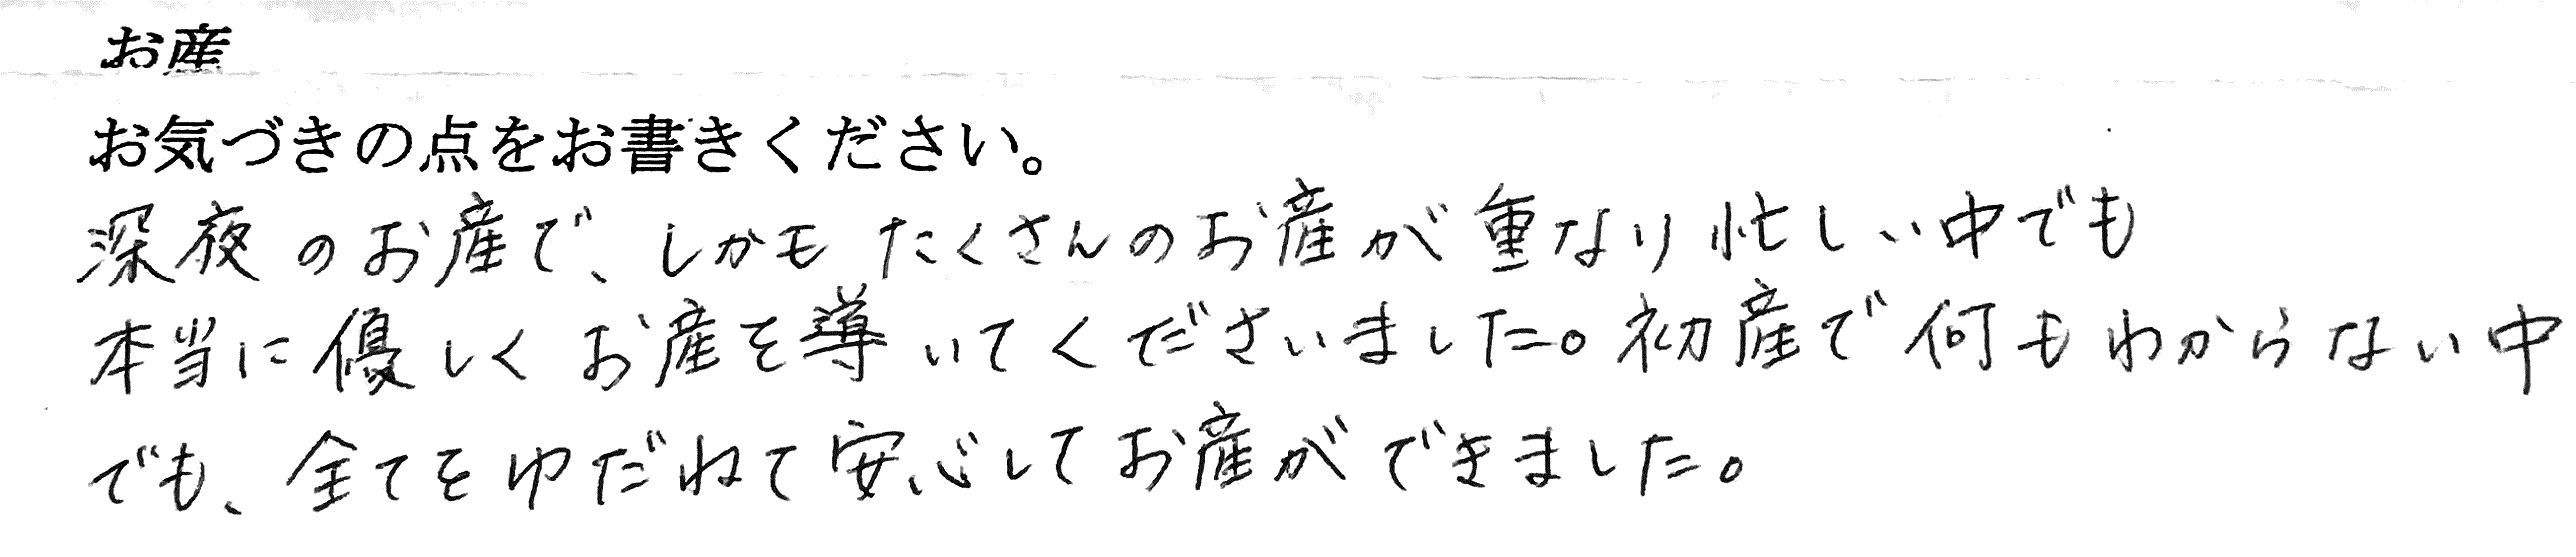 お産
お気づきの点をお書きください。
深夜のお産で、しかもたくさんのお産が重なり忙しい中でも
本当に優しくお産を導いてくださいました。初産で何もわからない中
でも、全てをゆだねて安心してお産ができました。